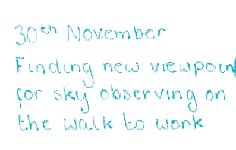 30th November
Finding new viewpoint
for sky observing on
the walk to work